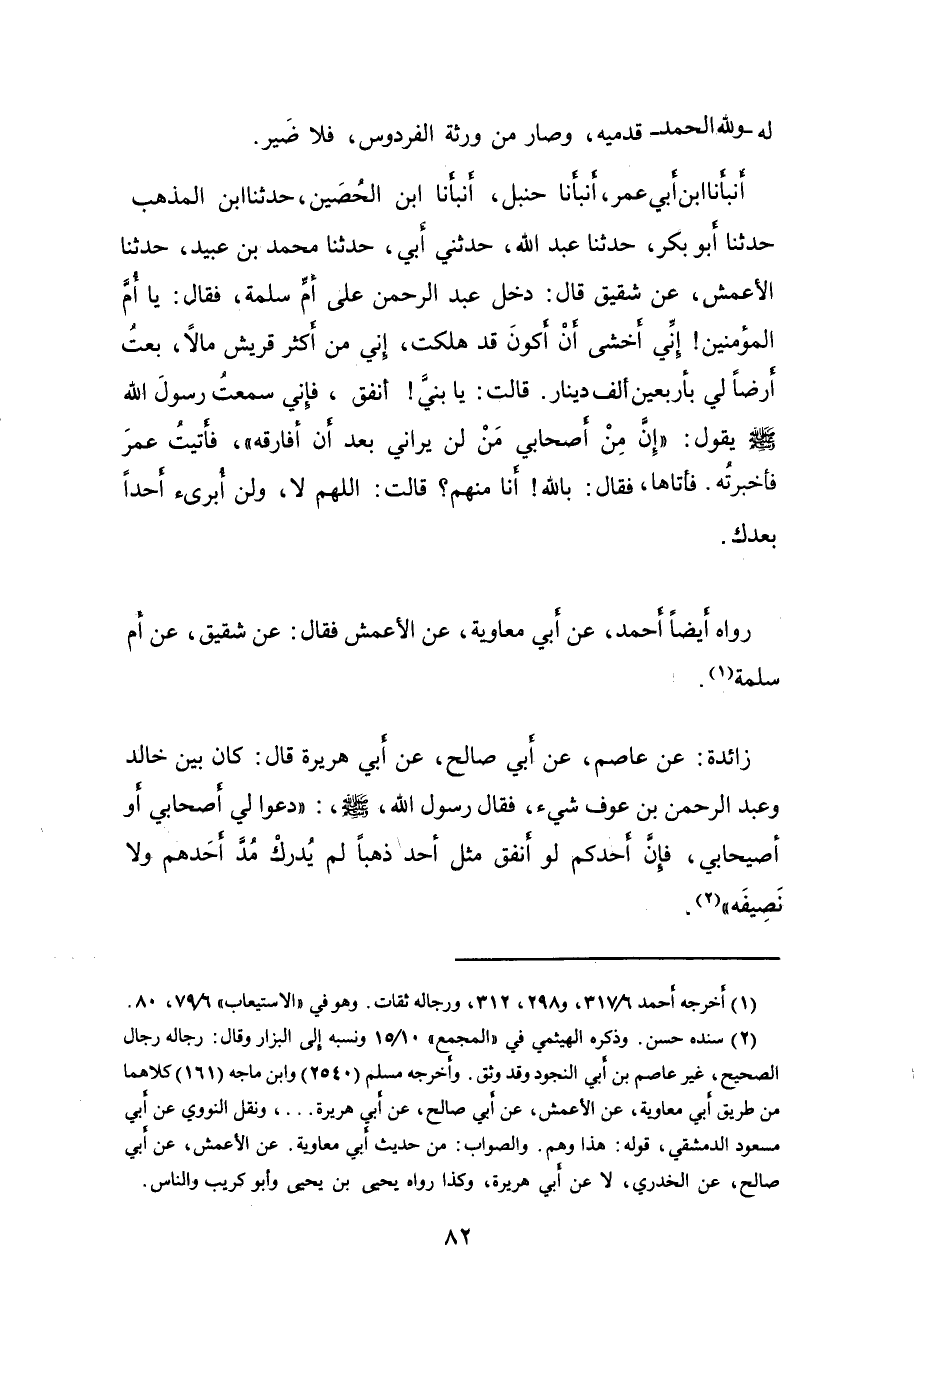 له ـ ولله الحمد ـ قدميه، وصار من ورثة الفردوس، فلا ضَير.
أَنبأَنا ابن أَبي عمر، أَنبأَنا حنبل، أَنبأَنا ابن الحُصَين، حدثنا ابن المذهب
حدثنا أَبو بكر، حدثنا عبد الله، حدثني أَبي، حدثنا محمد بن عبيد، حدثنا
الأعمش، عن شقيق قال: دخل عبد الرحمن على أُمِّ سلمة، فقال: يا أُمَّ
المؤمنين! إِنِّي أَخشى أَنْ أَكونَ قد هلكت، إني من أَكثر قريش مالًا، بعتُ
أَرضاً لي بأَربعين ألف دينار. قالت: يا بنيَّ! أنفق، فإِني سمعتُ رسولَ الله
ﷺ يقول: «إِنَّ مِنْ أَصحابي مَنْ لن يراني بعد أَن أفارقه»، فأَتيتُ عمرَ
فأخبرتُه. فأتاها، فقال: بالله! أَنا منهم؟ قالت: اللهم لا، ولن أُبرىء أَحداً
بعدك.
رواه أَيضاً أَحمد، عن أَبي معاوية، عن الأعمش فقال: عن شقيق، عن أُم
سلمة(١).
زائدة: عن عاصم، عن أَبي صالح، عن أَبي هريرة قال: كان بين خالد
وعبد الرحمن بن عوف شيء، فقال رسول الله، ﷺ،: «دعوا لي أَصحابي أَو
أصيحابي، فإِنَّ أَحدكم لو أَنفق مثل أحد ذهباً لم يُدركْ مُدَّ أَحَدهم ولا
نَصِيفَه»(٢).
(١) أَخرجه أَحمد ٣١٧/٦، و٢٩٨، ٣١٢، ورجاله ثقات. وهو في «الاستيعاب» ٧٩/٦، ٨٠.
(٢) سنده حسن. وذكره الهيثمي في «المجمع» ١٥/١٠ ونسبه إلى البزار وقال: رجاله رجال
الصحيح، غير عاصم بن أَبي النجود وقد وثق. وأَخرجه مسلم (٢٥٤٠) وابن ماجه (١٦١) كلاهما
من طريق أَبي معاوية، عن الأعمش، عن أَبي صالح، عن أَبي هريرة...، ونقل النووي عن أَبي
مسعود الدمشقي، قوله: هذا وهم. والصواب: من حديث أَبي معاوية. عن الأعمش، عن أَبي
صالح، عن الخدري، لا عن أَبي هريرة، وكذا رواه يحيى بن يحيى وأبو كريب والناس.
٨٢